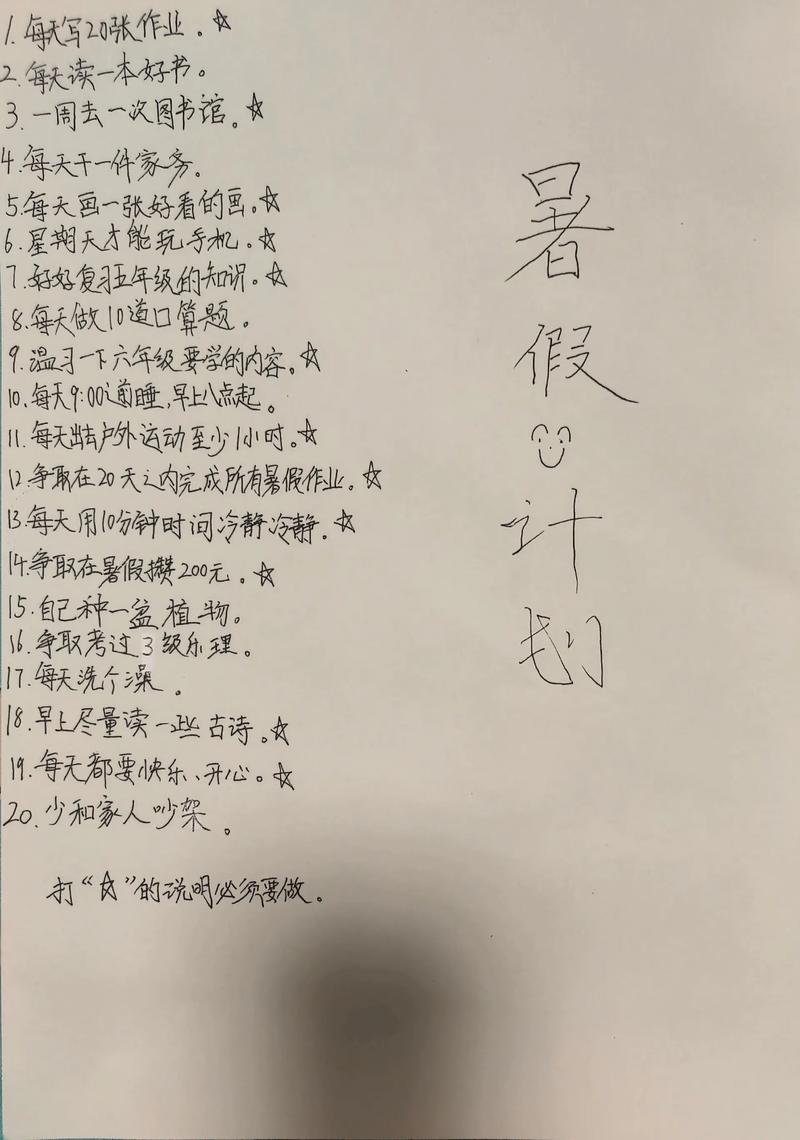 1.每天写20张作业。☆
2.每天读一本好书。
3.一周去一次图书馆。☆
4.每天干一件家务。
5.每天画一张好看的画。☆
6.星期天才能玩手机。☆
7.好好复习五年级的知识。☆
8.每天做10道口算题。
9.温习一下六年级要学的内容。☆
10.每天9:00之前睡,早上八点起。
11.每天出去户外运动至少1小时。☆
12.争取在20天之内完成所有暑假作业。☆
13.每天用10分钟时间冷静冷静。☆
14.争取在暑假攒200元。☆
15.自己种一盆植物。
16.争取考过3级乐理。
17.每天洗个澡。
18.早上尽量读一些古诗。☆
19.每天都要快乐、开心。☆
20.少和家人吵架。
打“☆”的说明必须要做。
暑假计划